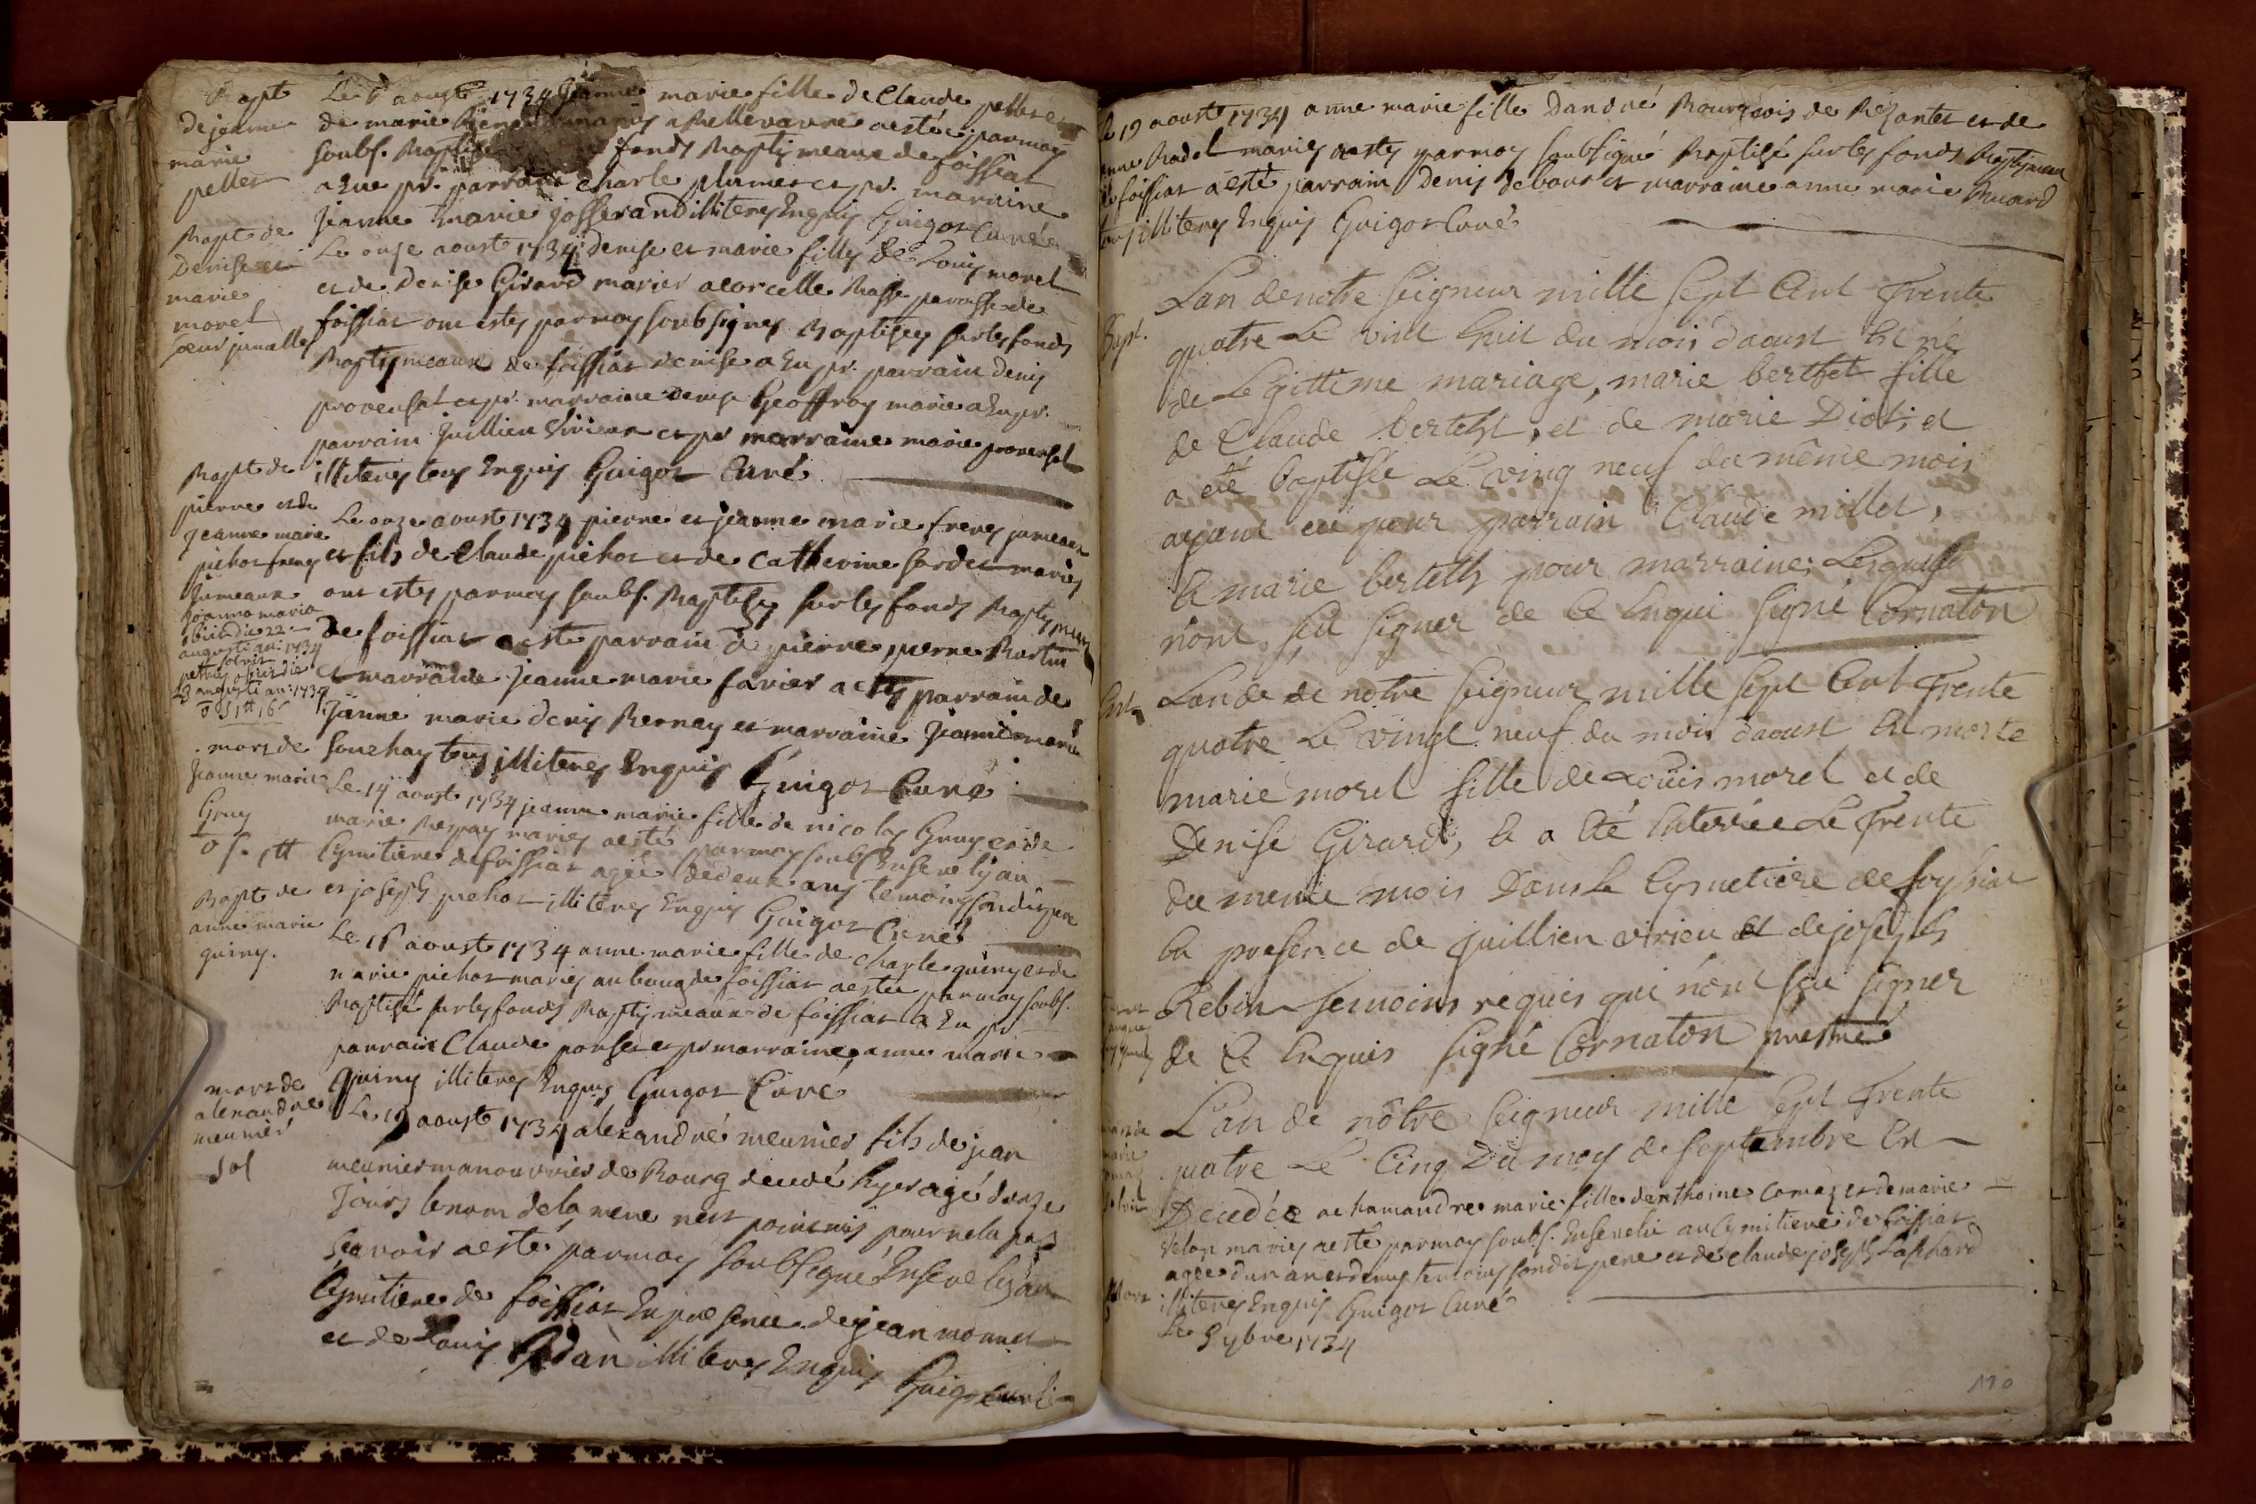 Bapt
de jeanne
marie
pellet
Le 6 aoust 1734 Jeanne marie fille de Claude pellet et
de marie mariés a Bellevavre a estée parmoy
soubs. Baptisé fonds Baptismeaux de foissiat
a Eue pr. parrain Charle plumet et pr. marraine
Jeanne marie josserand illiterés Enquis Guigot Curé
Bapt de
Denise et
marie
morel
soeurs jumelles
Le onze aoust 1734 denise et marie filles de Louis morel
et de Denise Girard mariés a corcelle Basse paroisse de
foissiat ont estés parmoy soubsignes Baptisées sur les fonds
Baptismeaux de foissiat denise a Eu pr. parrain denis
provensal et pr. marraine denise Geoffray marie a Eu pr.
parrain Juillien Virieux et pr marraine marie provensal
illiterés tous Enquis Guigot Curé
Bapt de
pierre et de
jeanne marie
pichot freres
jumeaux
Joanna maria
obiit die 22
augusti an. 1734
solvit
petrus obiit die
23 augusti an: 1734
Le onze aoust 1734 pierre et jeanne marie freres jumeaux
et fils de Claude pichot et de Catherine sardet mariés
ont estés parmoy soubs. Baptisés sur les fonds Baptismeaux
de foissiat a esté parrain de pierre pierre Burtin
et marraine jeanne marie favier a esté parrain de
Jeanne marie denis Bernay et marraine Jeanne marie
souchay tous illiterés Enquis Guigot Curé
mort de
Jeanne marie
Gruy
Le 14 aoust 1734 jeanne marie fille de nicolas Gruy et de
marie mariés a esté parmoy soubs Ensevely au
Cymitiere de foissiat agée de deux ans temoins sondit pere
et joseph pichot illiterés Enquis Guigot Curé
Bapt de
anne marie
quiny.
Le 16 aoust 1734 anne marie fille de charle quiny et de
marie pichot mariés au bourg de foissiat a estée parmoy soubs.
Baptisé sur les fonds Baptismeaux de foissiat a Eu pr
parrain Claude ponset et pr marraine anne marie
quiny illiterés Enquis Guigot Curé
mort de
alexandre
meunier
sol
Le 19 aoust 1734 alexandre meunier fils de jean
meunier manouvrier de Bourg decedé hyer agé donze
Jours le nom de la mere nest point mis pour ne la pas
sçavoir a esté parmoy soubsigné Ensevely au
Cymitiere de foissiat En presence de jean monnet
et de Louis Adan illiterés Enquis Guigot curé
Le 19 aoust 1734 anne marie fille Dandré Bourgeois de Bezantet et de
anne Badel mariés a estés parmoy soubsigné Baptisé sur les fonds Baptismeau
de foissiat a esté parrain Denis debout et marraine anne marie Buard
tous illiterés Enquis Guigot Curé
Bapt.
Lan denotre Seigneur mille Sept Cent Trente
quatre Le vint huit du mois daoust Est né
de Legittime mariage, marie berthet fille
de Claude berteht, et de marie Diot; et
a eté baptisée Le vingt neuf du même mois
ayant eü pour parrain Claude millet,
& marie berteth pour marraine; Lesquels
n'ont sçu signer de Ce Enqui signé Cornaton
Ent
Lan de de notre Seigneur mille sept Cent Trente
quatre Le vingt neuf du mois daoust Est morte
marie morel fille de Loüis morel et de
Denise Girard, & a Eté Enterrée Le Trente
du meme mois Dans le Cymetiere de foyssiat
En presence de Juillien virieu et de joseph
Rebin temoins requis qui n'ont sçu signer
de Ce Enquis signé Cornaton prestre
L'an de nôtre Seigneur mille Sept Trente
quatre Le Cinq Du moy de Septembre Est
Decedée a chamandre marie fille danthoine Comaz et de marie
velon mariés a esté parmoy soubs. Ensevelie au Cymitiere de foissiat
agée dun an et demy temoins sondit pere et de Claude joseph
illiterés Enquis Guigot Curé
Mort
Le 9 7bre 1734
110